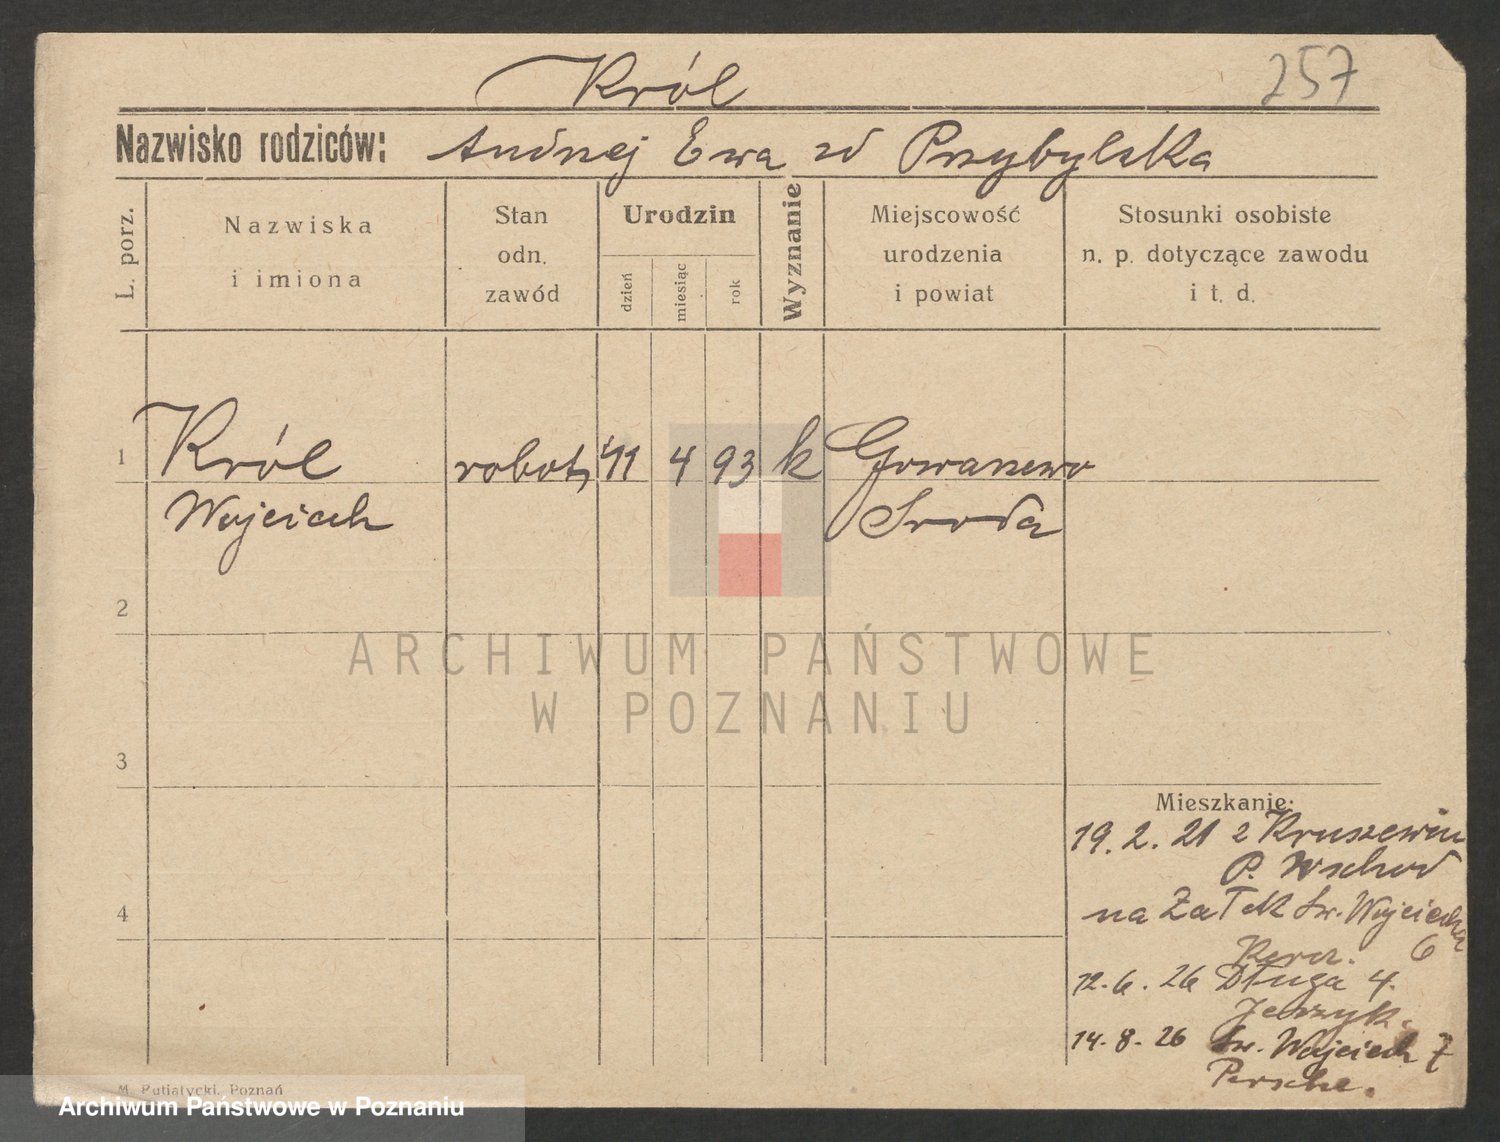 Król
257
Nazwisko rodziców: Andrzej Ewa zd Przybylska
L. porz.
Nazwiska
i imiona
Stan
odn.
zawód
Urodzin
dzień
miesiąc
rok
Wyznanie
Miejscowość
urodzenia
i powiat
Stosunki osobiste
n. p. dotyczące zawodu
i t. d.
1 Król robotn 11 4 93 k Gowarzewo
Wojciech Sroda
2
3
4
Mieszkanie:
19. 2. 21 z Kruszewni
P. Wschod
na Św. Wojciecha
6
12. 6. 26 Długa 4.
14. 8. 26 Św. Wojciech 7
M. Putiatycki, Poznań
ARCHIWUM PAŃSTWOWE
W POZNANIU
Archiwum Państwowe w Poznaniu